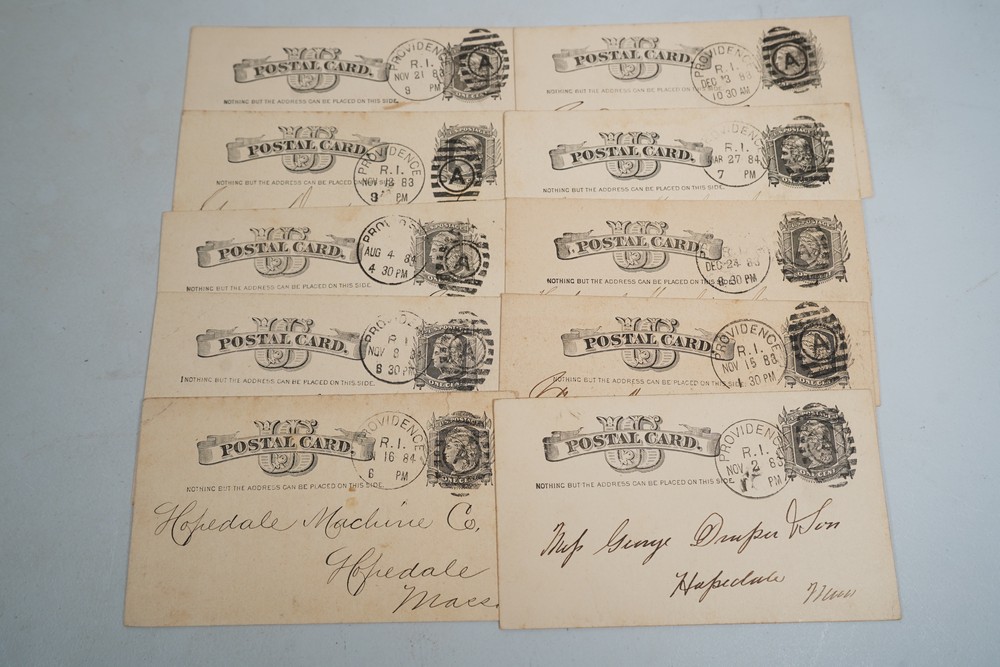 POSTAL CARD.
NOTHING BUT THE ADDRESS CAN BE PLACED ON THIS SIDE.
PROVIDENCE
R.I.
NOV 21 83
8 PM
A
ONE CENT
POSTAL CARD.
NOTHING BUT THE ADDRESS CAN BE PLACED ON THIS SIDE.
PROVIDENCE
R.I.
DEC 83
10 30 AM
A
ONE CENT
POSTAL CARD.
NOTHING BUT THE ADDRESS CAN BE PLACED ON THIS SIDE.
PROVIDENCE
R.I.
NOV 83
PM
A
POSTAL CARD.
NOTHING BUT THE ADDRESS CAN BE PLACED ON THIS SIDE.
PROVIDENCE
R.I.
MAR 27 84
7 PM
ONE CENT
POSTAL CARD.
NOTHING BUT THE ADDRESS CAN BE PLACED ON THIS SIDE.
AUG 4 84
4 30 PM
A
POSTAL CARD.
NOTHING BUT THE ADDRESS CAN BE PLACED ON THIS SIDE.
R.I.
DEC 24 83
30 PM
ONE CENT
POSTAL CARD.
NOTHING BUT THE ADDRESS CAN BE PLACED ON THIS SIDE.
R.I.
NOV
8 30 PM
A
ONE CENT
POSTAL CARD.
NOTHING BUT THE ADDRESS CAN BE PLACED ON THIS SIDE.
PROVIDENCE
R.I.
NOV 15 83
30 PM
A
ONE CENT
POSTAL CARD.
NOTHING BUT THE ADDRESS CAN BE PLACED ON THIS SIDE.
PROVIDENCE
R.I.
16 84
6 PM
A
ONE CENT
Hopedale Machine Co.
Hopedale
Mass
POSTAL CARD.
NOTHING BUT THE ADDRESS CAN BE PLACED ON THIS SIDE.
PROVIDENCE
R.I.
NOV 2 83
PM
ONE CENT
George Draper & Son
Hopedale
Mass